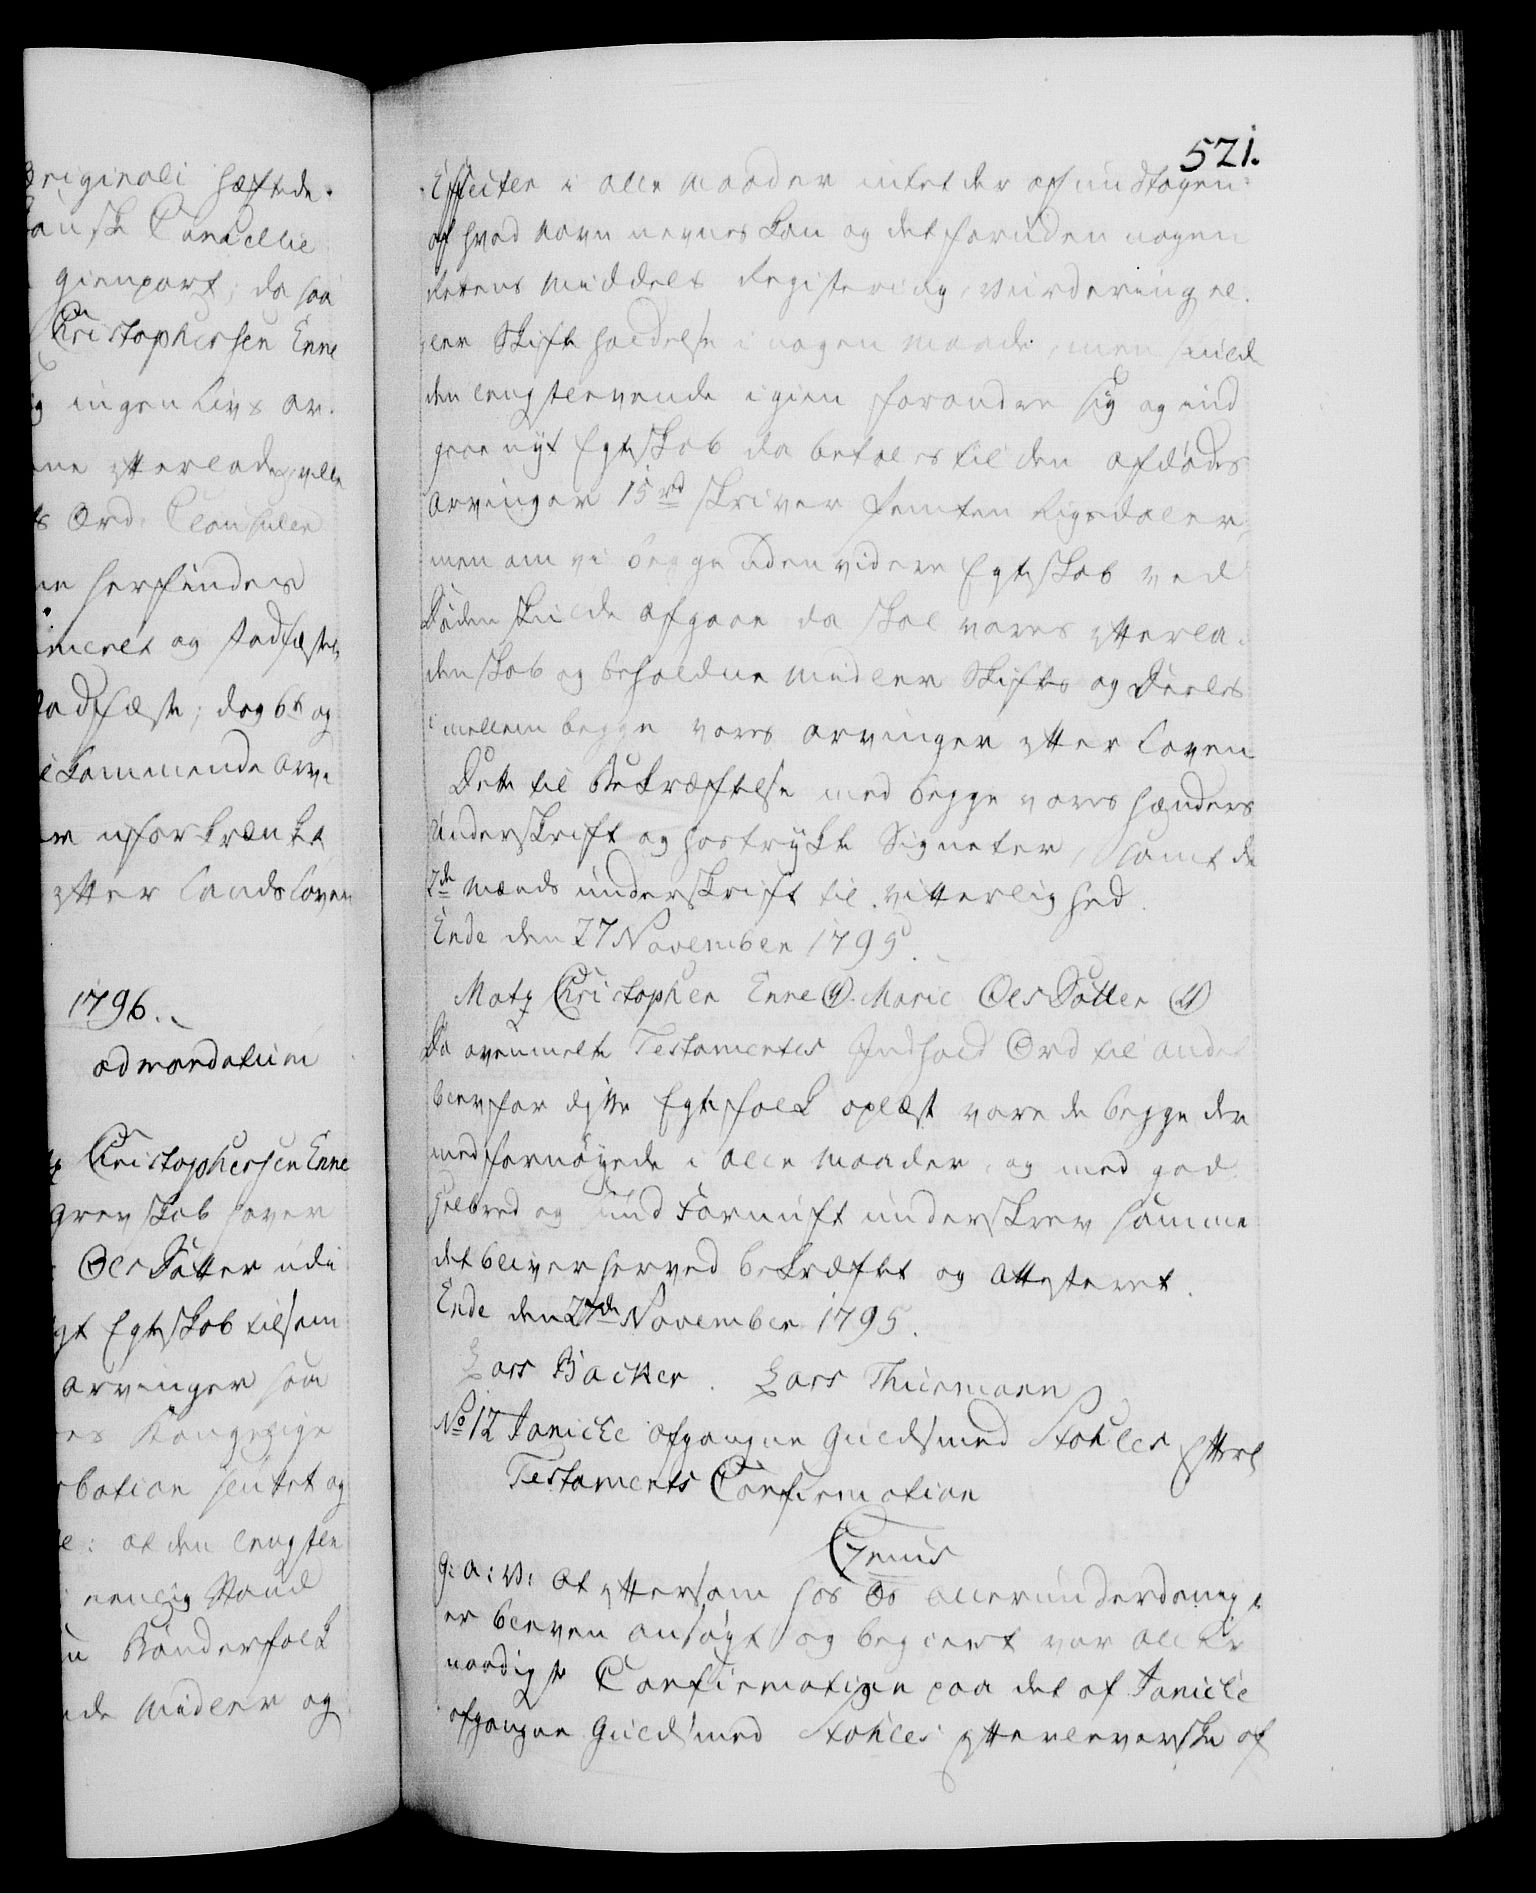 originali hæftede.
Dansk Cancellie
gienpart; da saa
Christophersen Enne
ig ingen Livs ar-
efterlade, ville
Ord Clausuler
herfindes
og stadfæste,
stadfæste; dog 6te og
vedkommende Arve
uforkrænket
efter Landsloven
1796.
ad mandatum
Christophersen Enne
grevskab haver
Ols Datter udi
Egteskab tilsam
arvinger saa
Kongelige
Approbation sentet og
at den længstle
eenlig Stand
Bønderfolk
Midler og
521.
Effecter i alle Maader intet der af undtagen
af hvad Navn nevnes kan og det foruden nogen
Rettens Middels Registering, Vurdering el-
ler Skifte holdelse i nogen Maade, men skulde
den lengstlevende igien forandre sig og ind
gaae nyt Egteskab da betales til den afdødes
Arvinger 15 rd skriver femten Rigsdaler,
men om vi begge uden videre Egteskab ved
Døden skulde afgaae da skal vores efterla-
denskab og beholdne Midler Skiftes og Deeles
imellem begge vores Arvinger efter Loven
Dette til Bekræftelse med begge vores hænders
Underskrift og hostrykte Signeter, samt de
2de Mænds underskrift til Vitterlighed.
Ende den 27 November 1795.
Matz Christopher Enne (S). Marie Ols Datter (S)
Da ovenmelte Testamentes Indhold Ord til andet
blev for dette Egtefolk oplæst vare de begge der
med fornøyede i alle Maader, og med god
Helbred og sund Fornuft underskrev samme
det bliver herved bekræftet og Attesteret.
Ende den 27de November 1795.
Lars Backer. Lars Thurmann
No 12 Janicke afgangne Guldsmed Stohles Efterl
Testaments Confirmation
G: A: V: At eftersom hos Os allerunderdanigst
er bleven ansøgt og begiert vor aller
naadigste Confirmation paa det af Janicke
afgangne Guldsmed Stohles efterleverske af